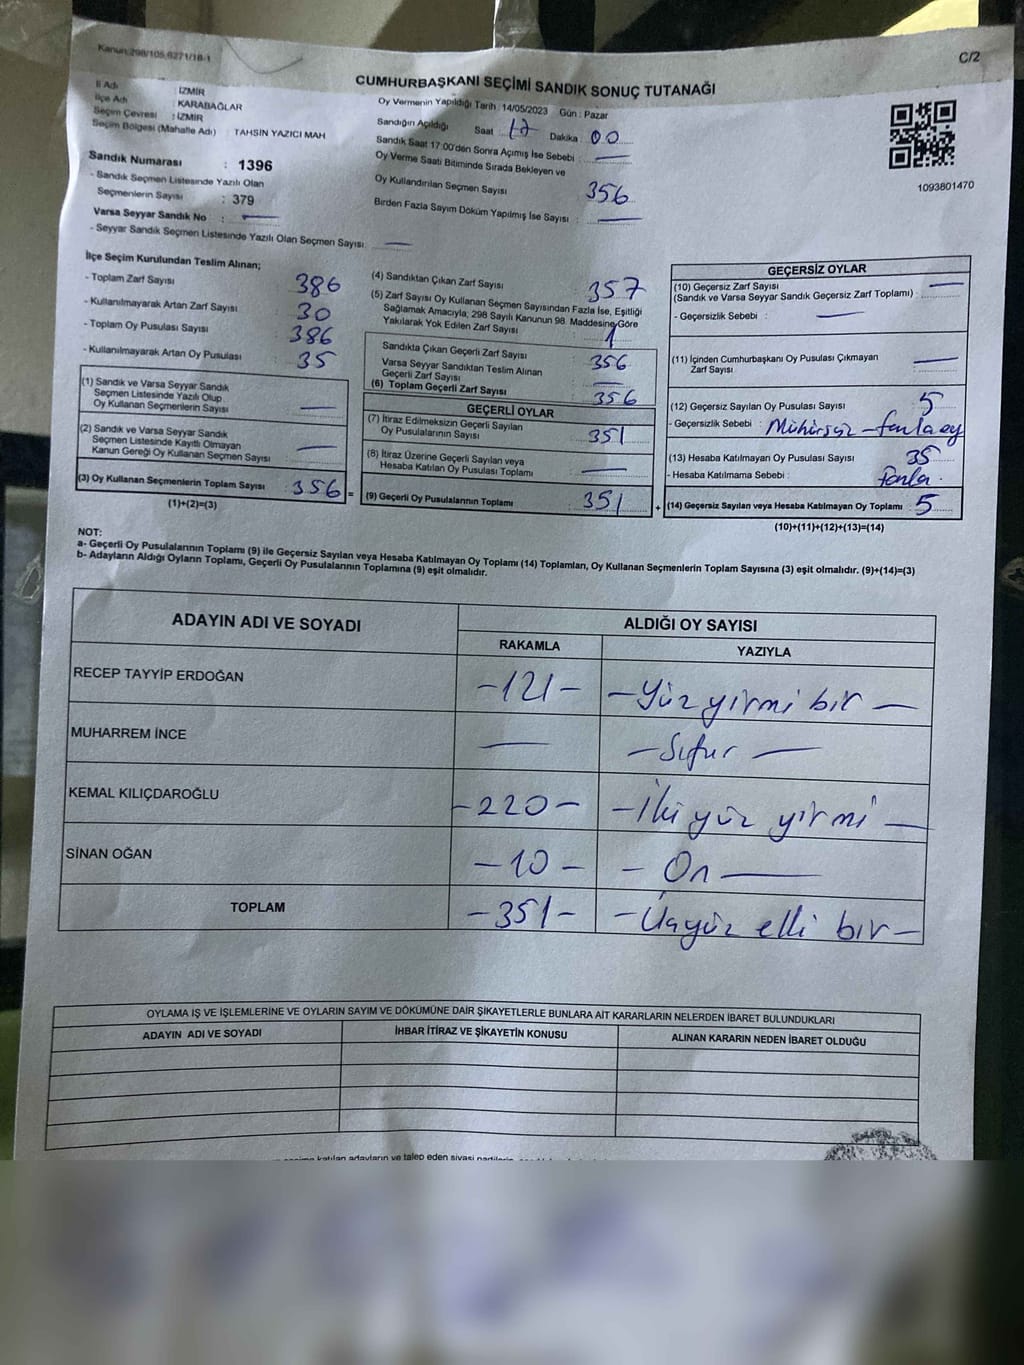 Kanun:298/105,6271/18-1
C/2
CUMHURBAŞKANI SEÇİMİ SANDIK SONUÇ TUTANAĞI
İl Adı : İZMİR
İlçe Adı KARABAĞLAR
Seçim Çevresi : İZMİR
Seçim Bölgesi (Mahalle Adı) : TAHSİN YAZICI MAH
Sandık Numarası : 1396
- Sandık Seçmen Listesinde Yazılı Olan
Seçmenlerin Sayısı : 379
Varsa Seyyar Sandık No : —
- Seyyar Sandık Seçmen Listesinde Yazılı Olan Seçmen Sayısı: —
Oy Vermenin Yapıldığı Tarih : 14/05/2023 Gün : Pazar
Sandığın Açıldığı Saat : 17 Dakika : 00
Sandık Saat 17:00'den Sonra Açımış İse Sebebi : —
Oy Verme Saati Bitiminde Sırada Bekleyen ve
Oy Kullandırılan Seçmen Sayısı 356
Birden Fazla Sayım Döküm Yapılmış İse Sayısı : —
1093801470
İlçe Seçim Kurulundan Teslim Alınan;
- Toplam Zarf Sayısı 386
- Kullanılmayarak Artan Zarf Sayısı 30
- Toplam Oy Pusulası Sayısı 386
- Kullanılmayarak Artan Oy Pusulası 35
(1) Sandık ve Varsa Seyyar Sandık
Seçmen Listesinde Yazılı Olup
Oy Kullanan Seçmenlerin Sayısı : —
(2) Sandık ve Varsa Seyyar Sandık
Seçmen Listesinde Kayıtlı Olmayan
Kanun Gereği Oy Kullanan Seçmen Sayısı : —
(3) Oy Kullanan Seçmenlerin Toplam Sayısı 356 =
(1)+(2)=(3)
(4) Sandıktan Çıkan Zarf Sayısı : 357
(5) Zarf Sayısı Oy Kullanan Seçmen Sayısından Fazla İse, Eşitliği
Sağlamak Amacıyla; 298 Sayılı Kanunun 98. Maddesine Göre
Yakılarak Yok Edilen Zarf Sayısı : 1
Sandıkta Çıkan Geçerli Zarf Sayısı : 356
Varsa Seyyar Sandıktan Teslim Alınan
Geçerli Zarf Sayısı : —
(6) Toplam Geçerli Zarf Sayısı : 356
GEÇERLİ OYLAR
(7) İtiraz Edilmeksizin Geçerli Sayılan
Oy Pusulalarının Sayısı : 351
(8) İtiraz Üzerine Geçerli Sayılan veya
Hesaba Katılan Oy Pusulası Toplamı : —
(9) Geçerli Oy Pusulalarının Toplamı : 351 +
GEÇERSİZ OYLAR
(10) Geçersiz Zarf Sayısı
(Sandık ve Varsa Seyyar Sandık Geçersiz Zarf Toplamı) : —
- Geçersizlik Sebebi : —
(11) İçinden Cumhurbaşkanı Oy Pusulası Çıkmayan
Zarf Sayısı : —
(12) Geçersiz Sayılan Oy Pusulası Sayısı : 5
- Geçersizlik Sebebi : Mühürsüz - fazla oy
(13) Hesaba Katılmayan Oy Pusulası Sayısı : 35
- Hesaba Katılmama Sebebi : fazla.
(14) Geçersiz Sayılan veya Hesaba Katılmayan Oy Toplamı : 5
(10)+(11)+(12)+(13)=(14)
NOT:
a- Geçerli Oy Pusulalarının Toplamı (9) ile Geçersiz Sayılan veya Hesaba Katılmayan Oy Toplamı (14) Toplamları, Oy Kullanan Seçmenlerin Toplam Sayısına (3) eşit olmalıdır. (9)+(14)=(3)
b- Adayların Aldığı Oyların Toplamı, Geçerli Oy Pusulalarının Toplamına (9) eşit olmalıdır.
ADAYIN ADI VE SOYADI ALDIĞI OY SAYISI
RAKAMLA YAZIYLA
RECEP TAYYİP ERDOĞAN -121- - Yüz yirmi bir -
MUHARREM İNCE — - Sıfır -
KEMAL KILIÇDAROĞLU -220- - İki yüz yirmi -
SİNAN OĞAN -10- - On -
TOPLAM -351- - Üçyüz elli bir -
OYLAMA İŞ VE İŞLEMLERİNE VE OYLARIN SAYIM VE DÖKÜMÜNE DAİR ŞİKAYETLERLE BUNLARA AİT KARARLARIN NELERDEN İBARET BULUNDUKLARI
ADAYIN ADI VE SOYADI İHBAR İTİRAZ VE ŞİKAYETİN KONUSU ALINAN KARARIN NEDEN İBARET OLDUĞU
katılan adayların ve talep eden siyasi